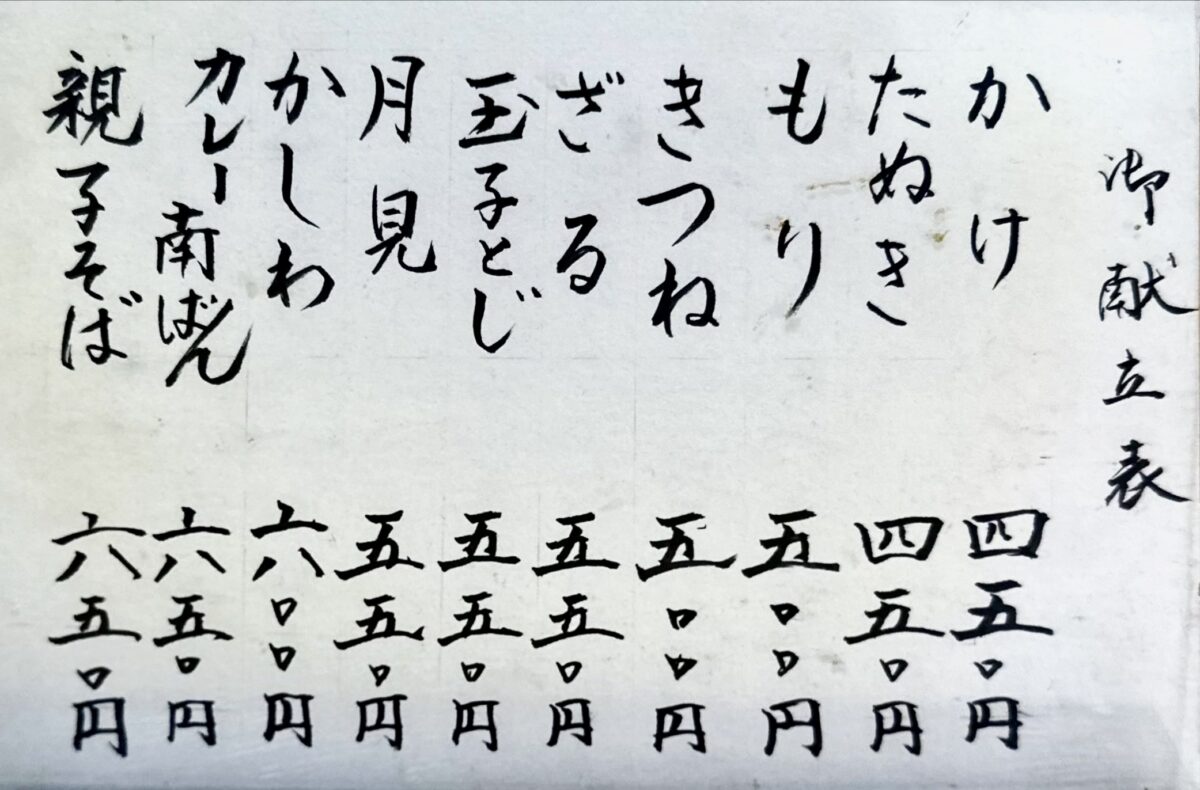 御献立表
かけ 四五〇円
たぬき 四五〇円
もり 五〇〇円
きつね 五〇〇円
ざる 五五〇円
玉子とじ 五五〇円
月見 五五〇円
かしわ 六〇〇円
カレー南ばん 六五〇円
親子そば 六五〇円